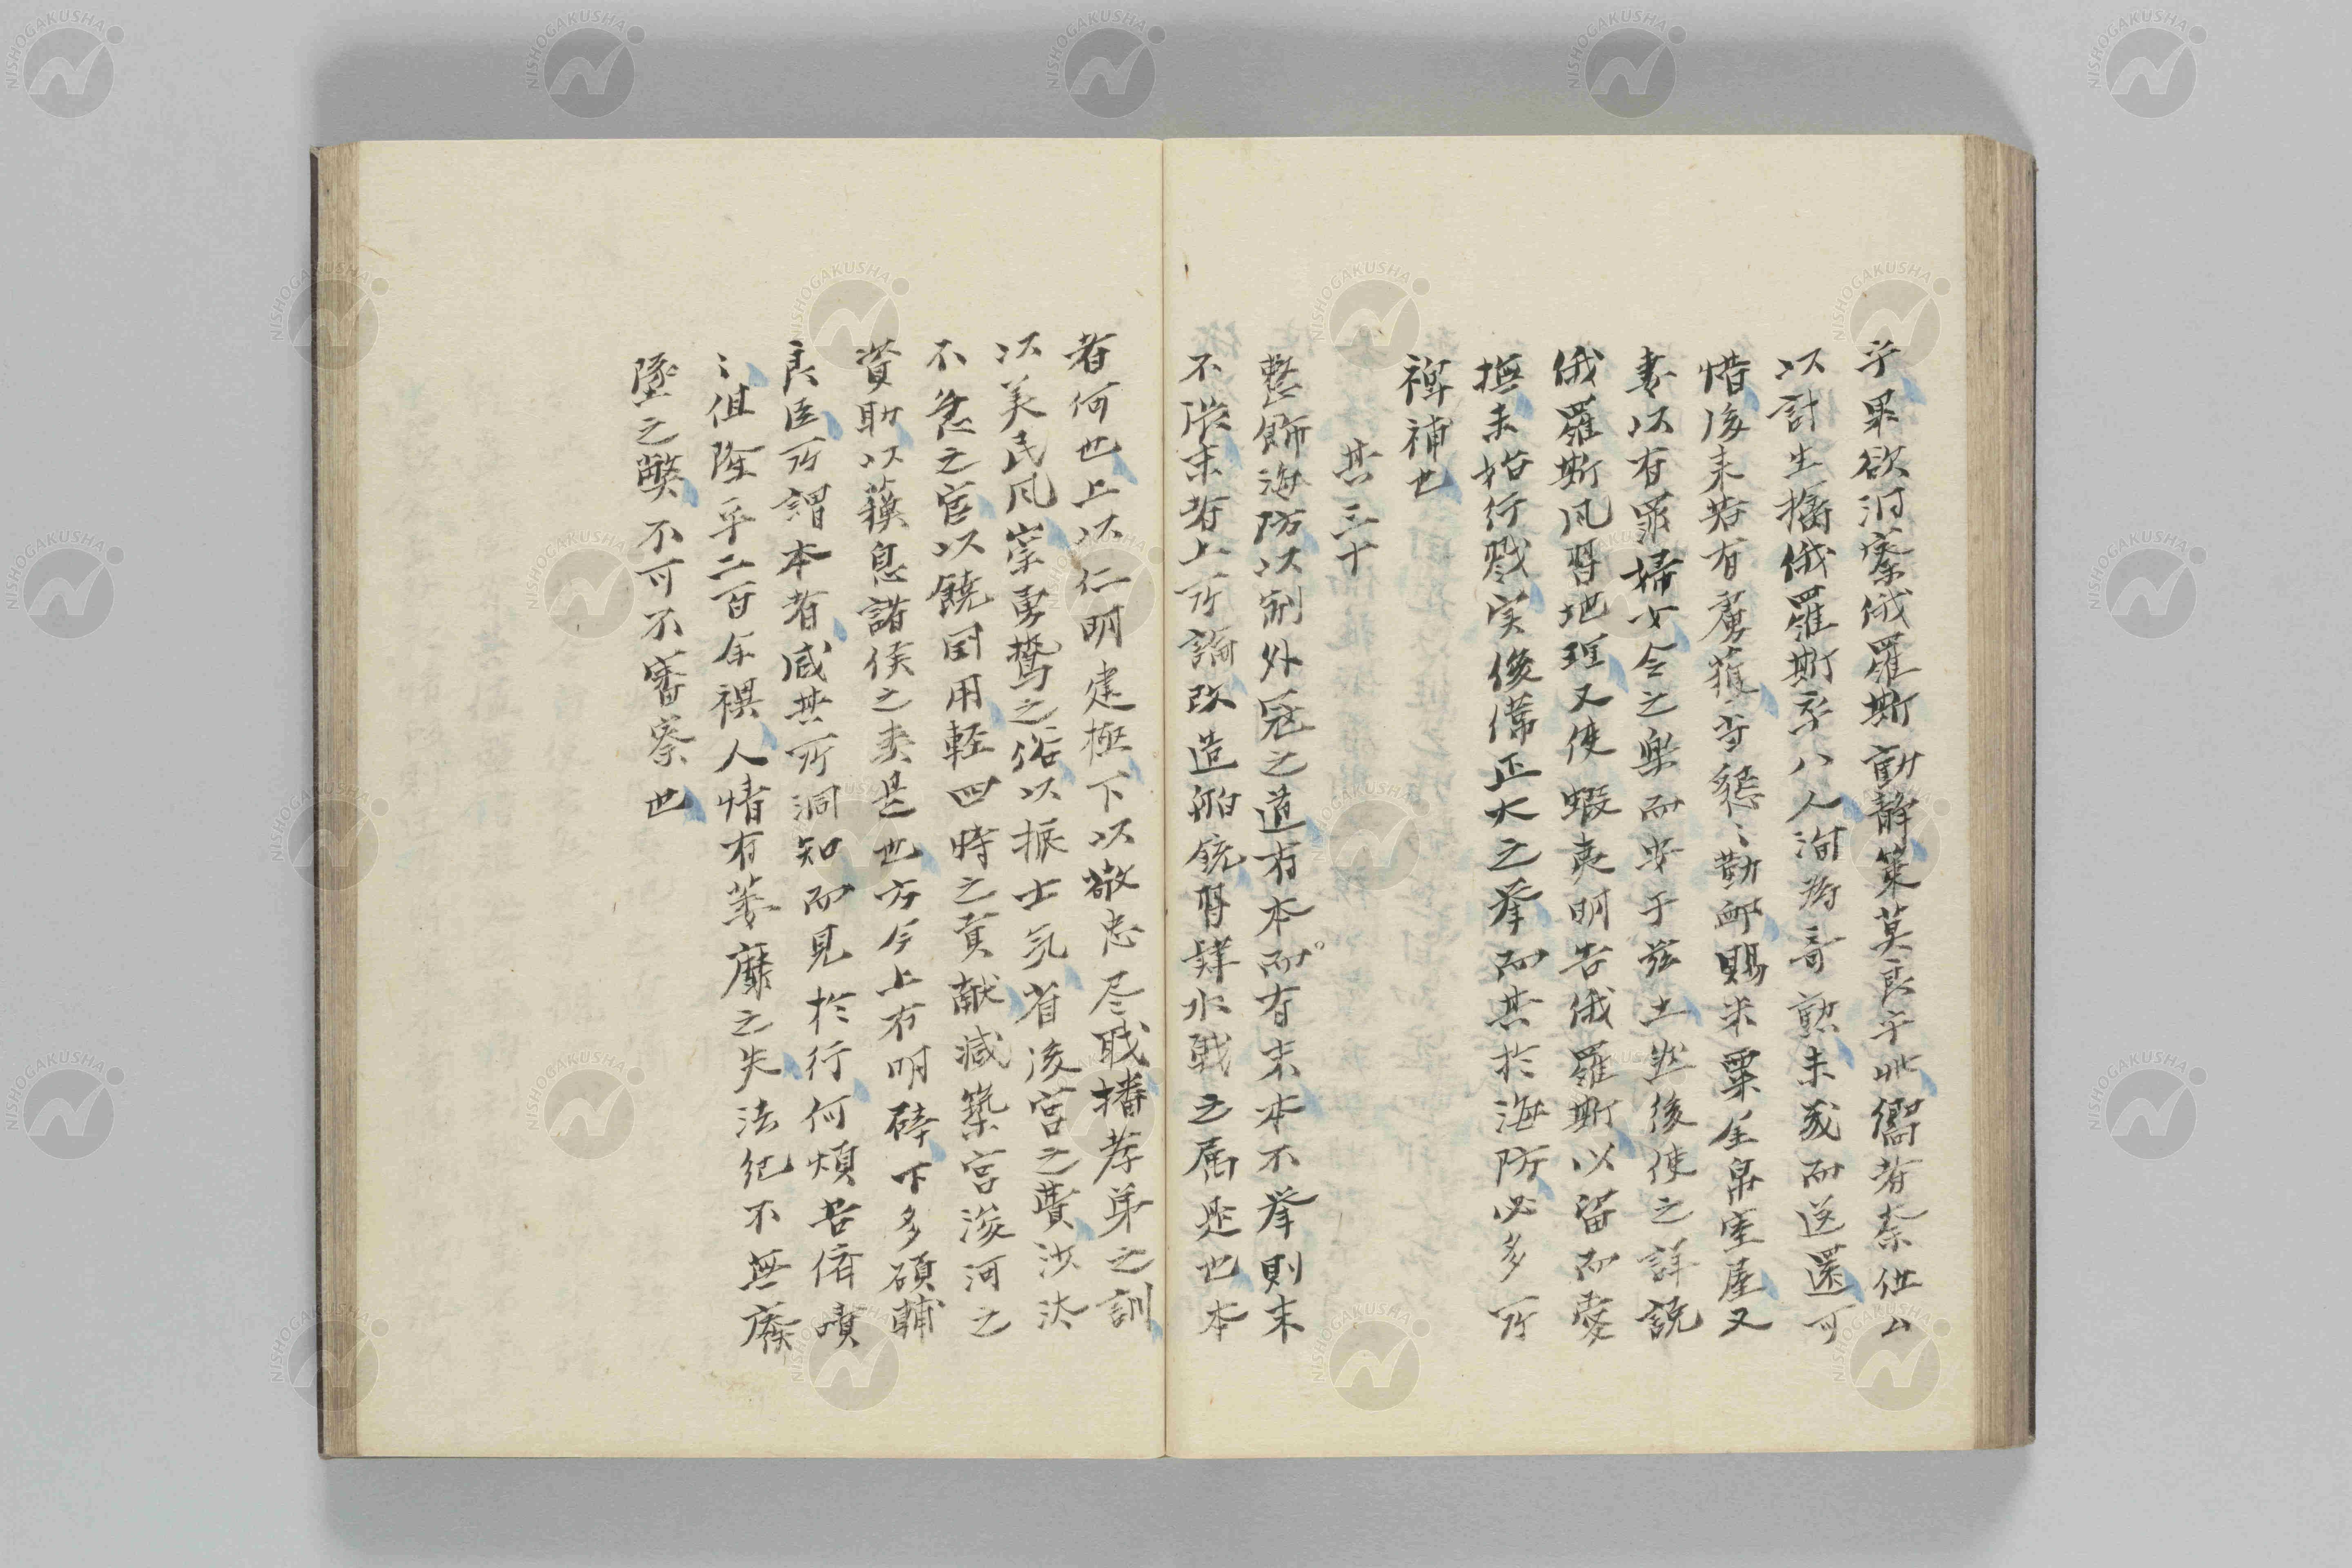 乎果欲洞察俄羅斯動静策莫良乎此嚮者秦世公
以計生擒俄羅斯孚八人洵為奇熟未戒而送還可
惜後来若有虜獲宜懇〻勤卹賜米粟金帛室屋又
妻以有罪婦女令之楽而安于茲土然後使之詳説
俄羅斯凡習地理又使蝦夷明告俄羅斯以留而愛
撫未拈行戮実俊偉正大之挙而其於海防必多所
裨補也
其三十
整飾海防以制外冦之道有本而有末本不挙則末
不張末者上所論改造舶銃習肄水戦之属是也本
者何也上以仁明建極下以敬忠尽職播孝弟之訓
以美民風崇勇鷙之俗以振士気省後宮之費沙汰
不急之官以饒国用軽四時之貢献減築宮浚河之
資助以蘓息諸侯之素是也方今上有明辟下多碩輔
良臣所謂本者咸其所洞知而見於行何煩吾儕嘖
〻但陞平二百余禩人情有萎靡之失法紀不無廃
墜之弊不可不審察也
NISHOGAKUSHA